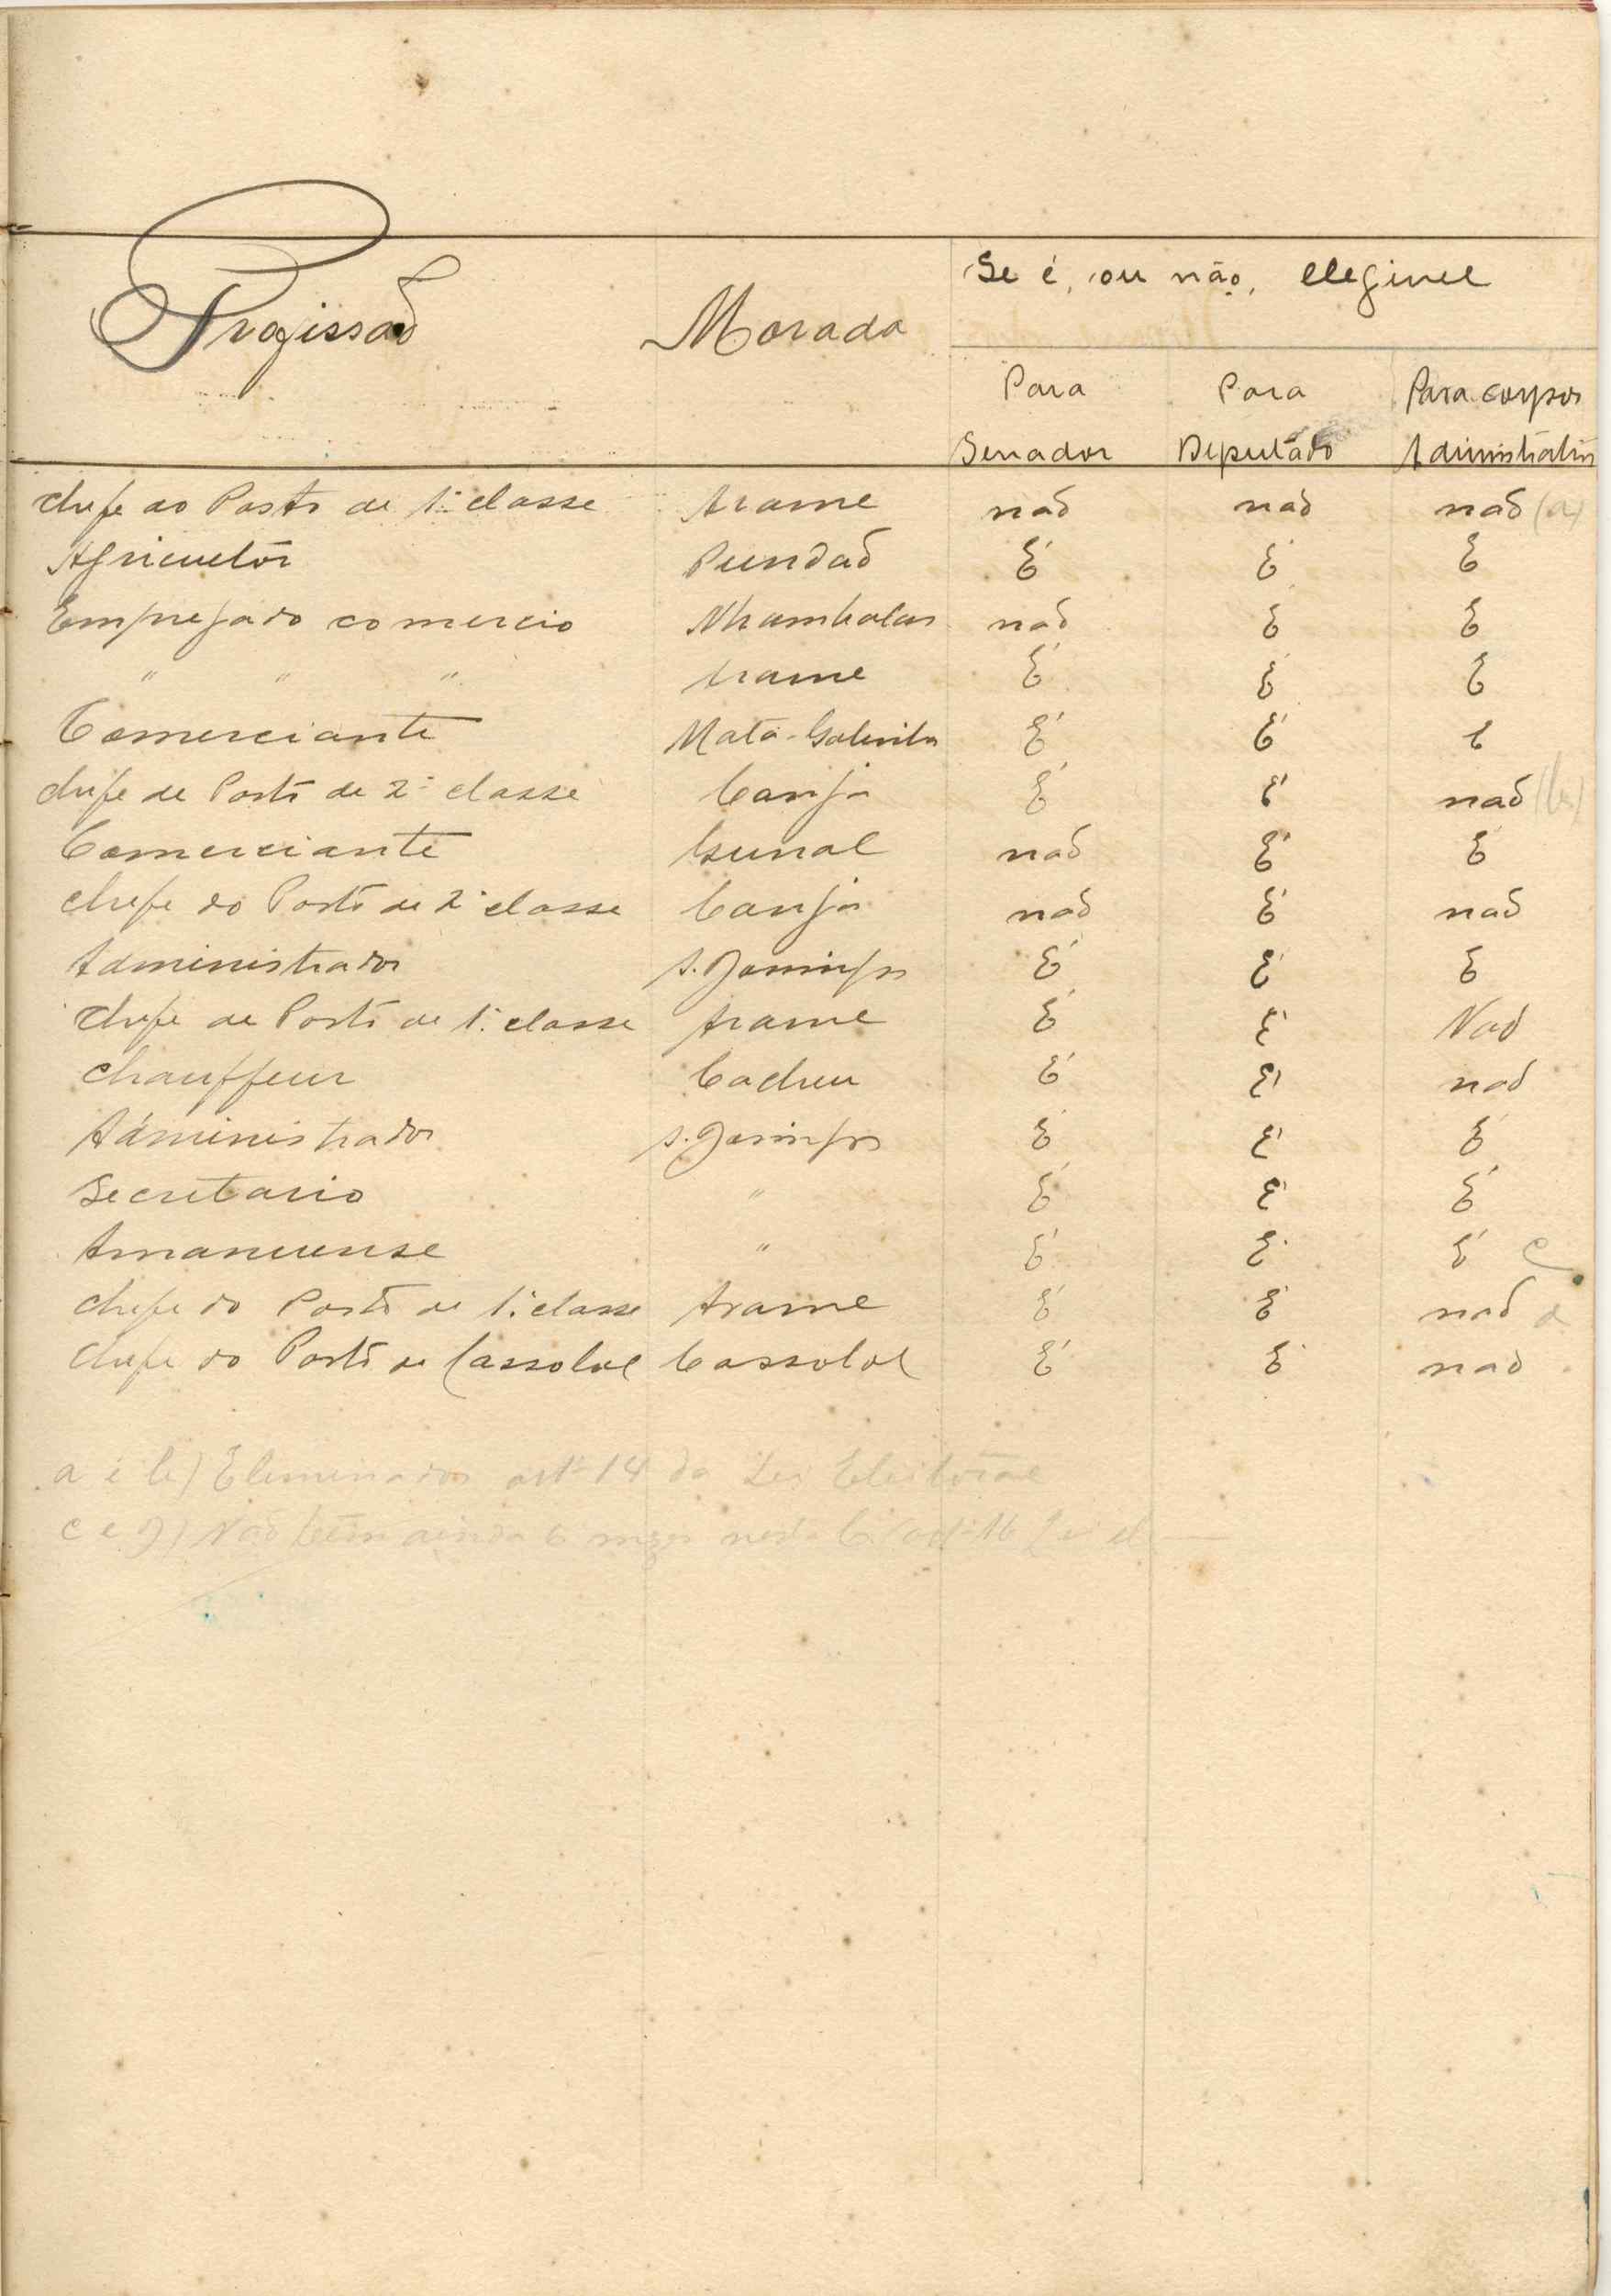 Profissão Morada Se é, ou não, elegivel
Para Senador Para Deputado Para corpos Administrativos
Chefe do Posto de 1.ª classe Arame não não não (a)
Agricultor Pundão É É É
Empregado comercio não É É
" " " Arame É É É
Comerciante É É É
Chefe de Posto de 2.ª classe Canja É É não (b)
Comerciante não É É
Chefe do Posto de 2.ª classe Canja não É não
Administrador S. Domingos É É É
Chefe de Posto de 1.ª classe Arame É É Não
Chauffeur Cacheu É É não
Administrador S. Domingos É É É
Secretario " É É É
Amanuense " É É É c
Chefe do Posto de 1.ª classe Arame É É não d
Chefe do Posto de Cassolol Cassolol É É não
a e b) Eleminados artº 14 da Lei Eleitoral
c e d) Não têm ainda 6 mezes nesta